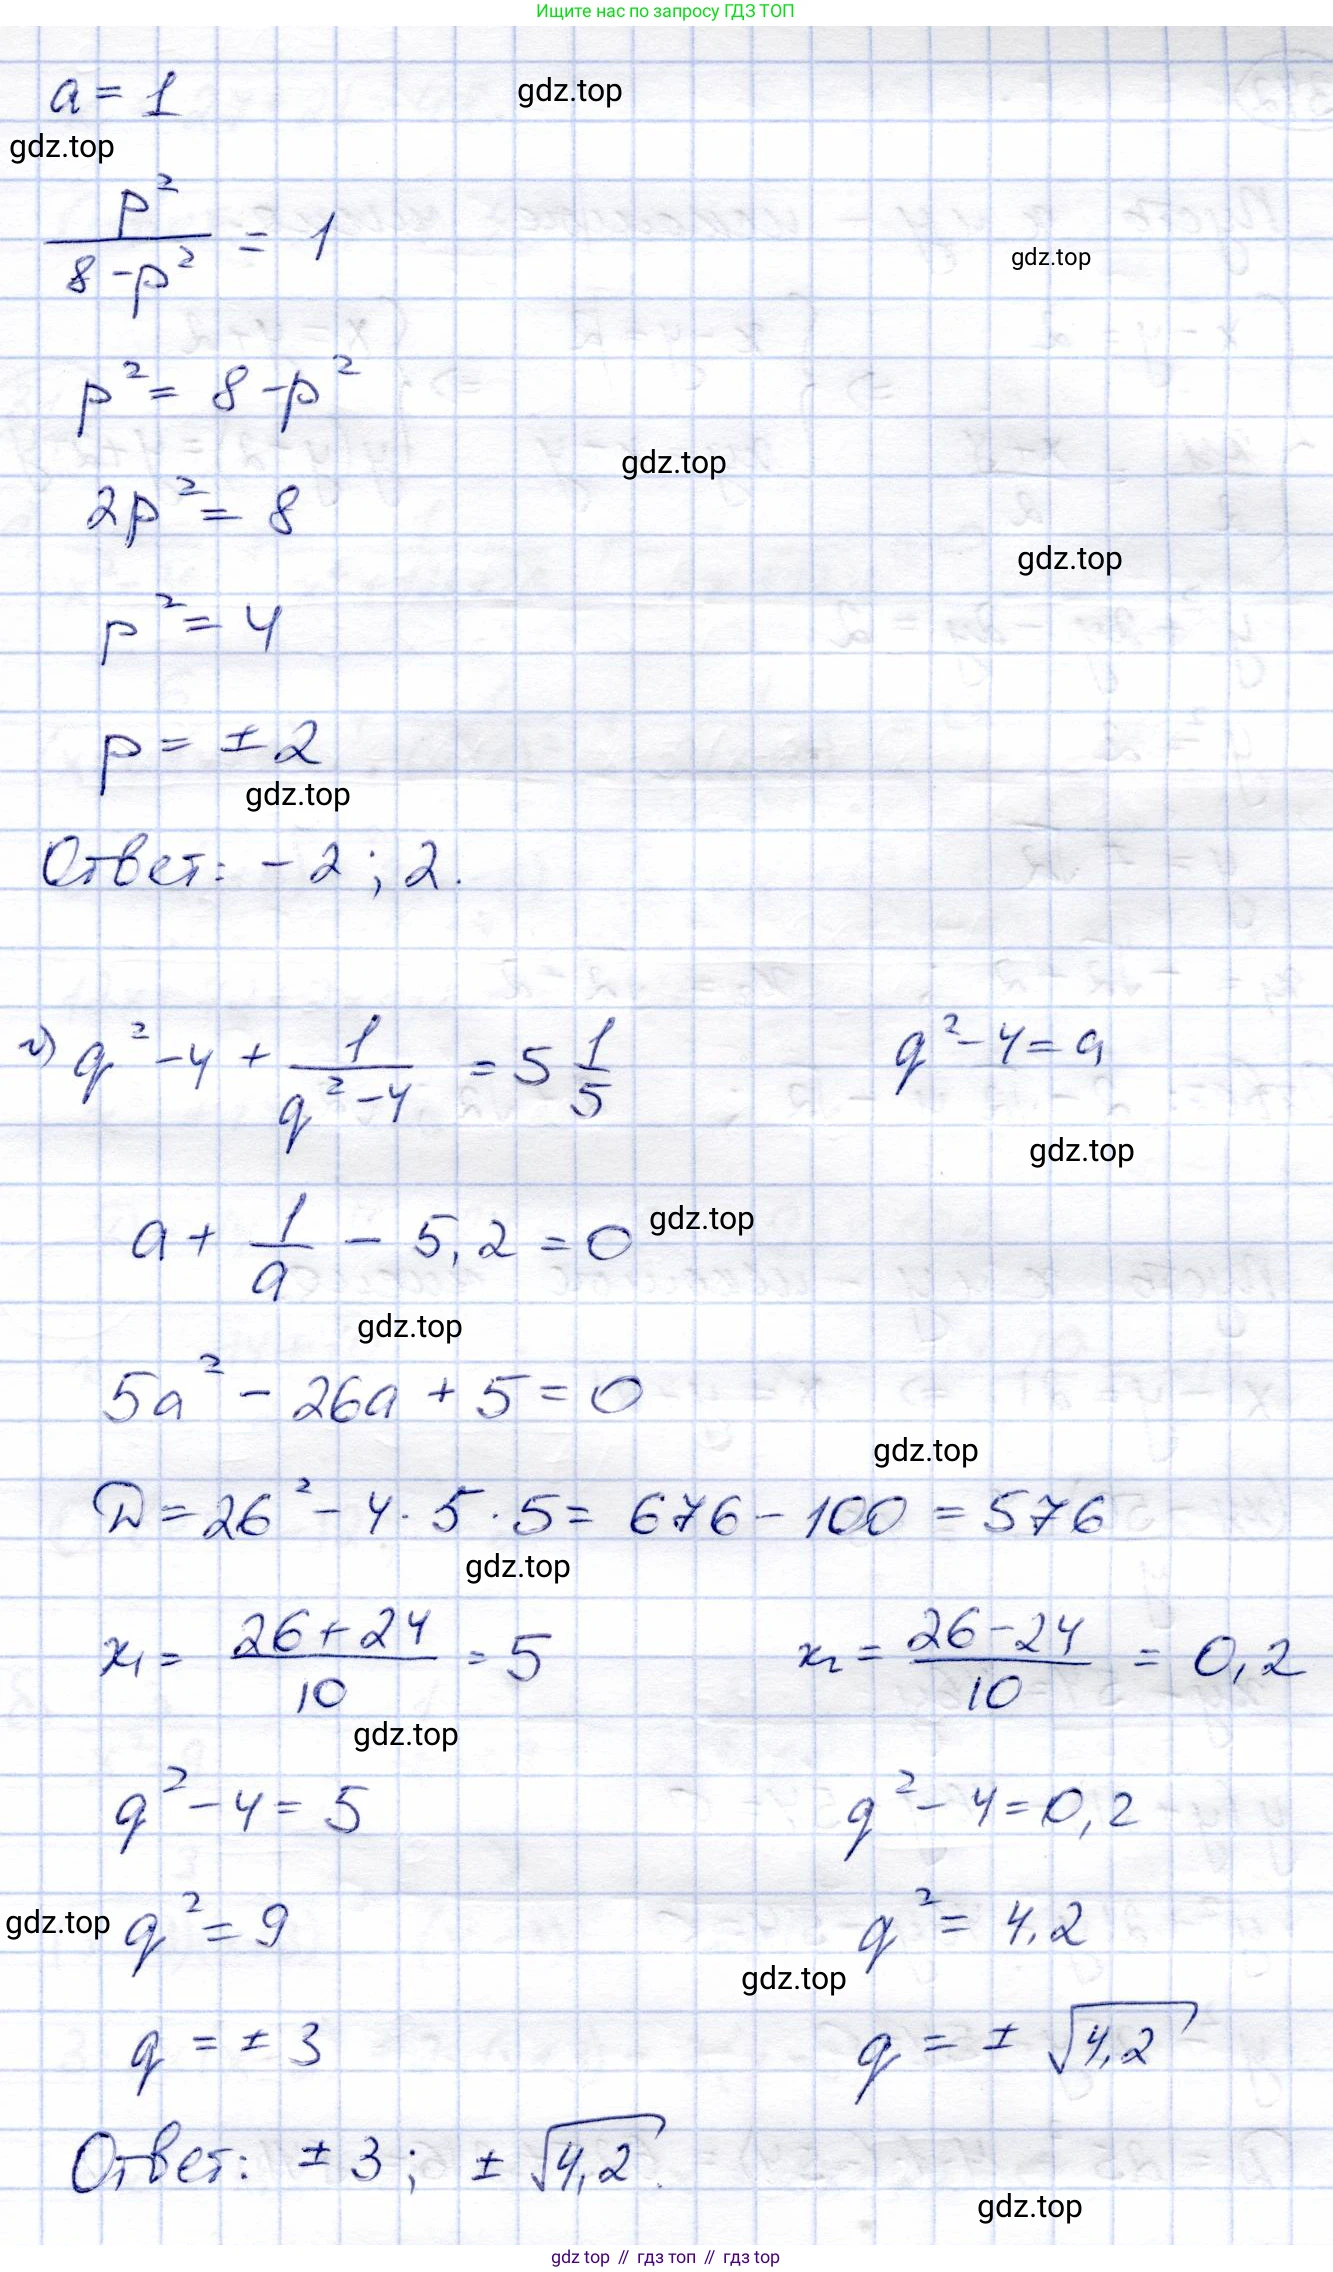 Ищите нас по запросу ГДЗ ТОП
a = 1
gdz.top
gdz.top
p² / (8 - p²) = 1
gdz.top
p² = 8 - p²
gdz.top
2p² = 8
gdz.top
p² = 4
p = ± 2
gdz.top
Ответ: -2; 2.
г) q² - 4 + 1/(q² - 4) = 5 1/5
q² - 4 = a
gdz.top
a + 1/a - 5,2 = 0
gdz.top
gdz.top
5a² - 26a + 5 = 0
gdz.top
D = 26² - 4 · 5 · 5 = 676 - 100 = 576
gdz.top
x₁ = (26 + 24)/10 = 5
x₂ = (26 - 24)/10 = 0,2
gdz.top
q² - 4 = 5
q² - 4 = 0,2
gdz.top
q² = 9
q² = 4,2
gdz.top
q = ± 3
q = ± √4,2
Ответ: ± 3; ± √4,2.
gdz.top
gdz top // гдз топ // гдз top